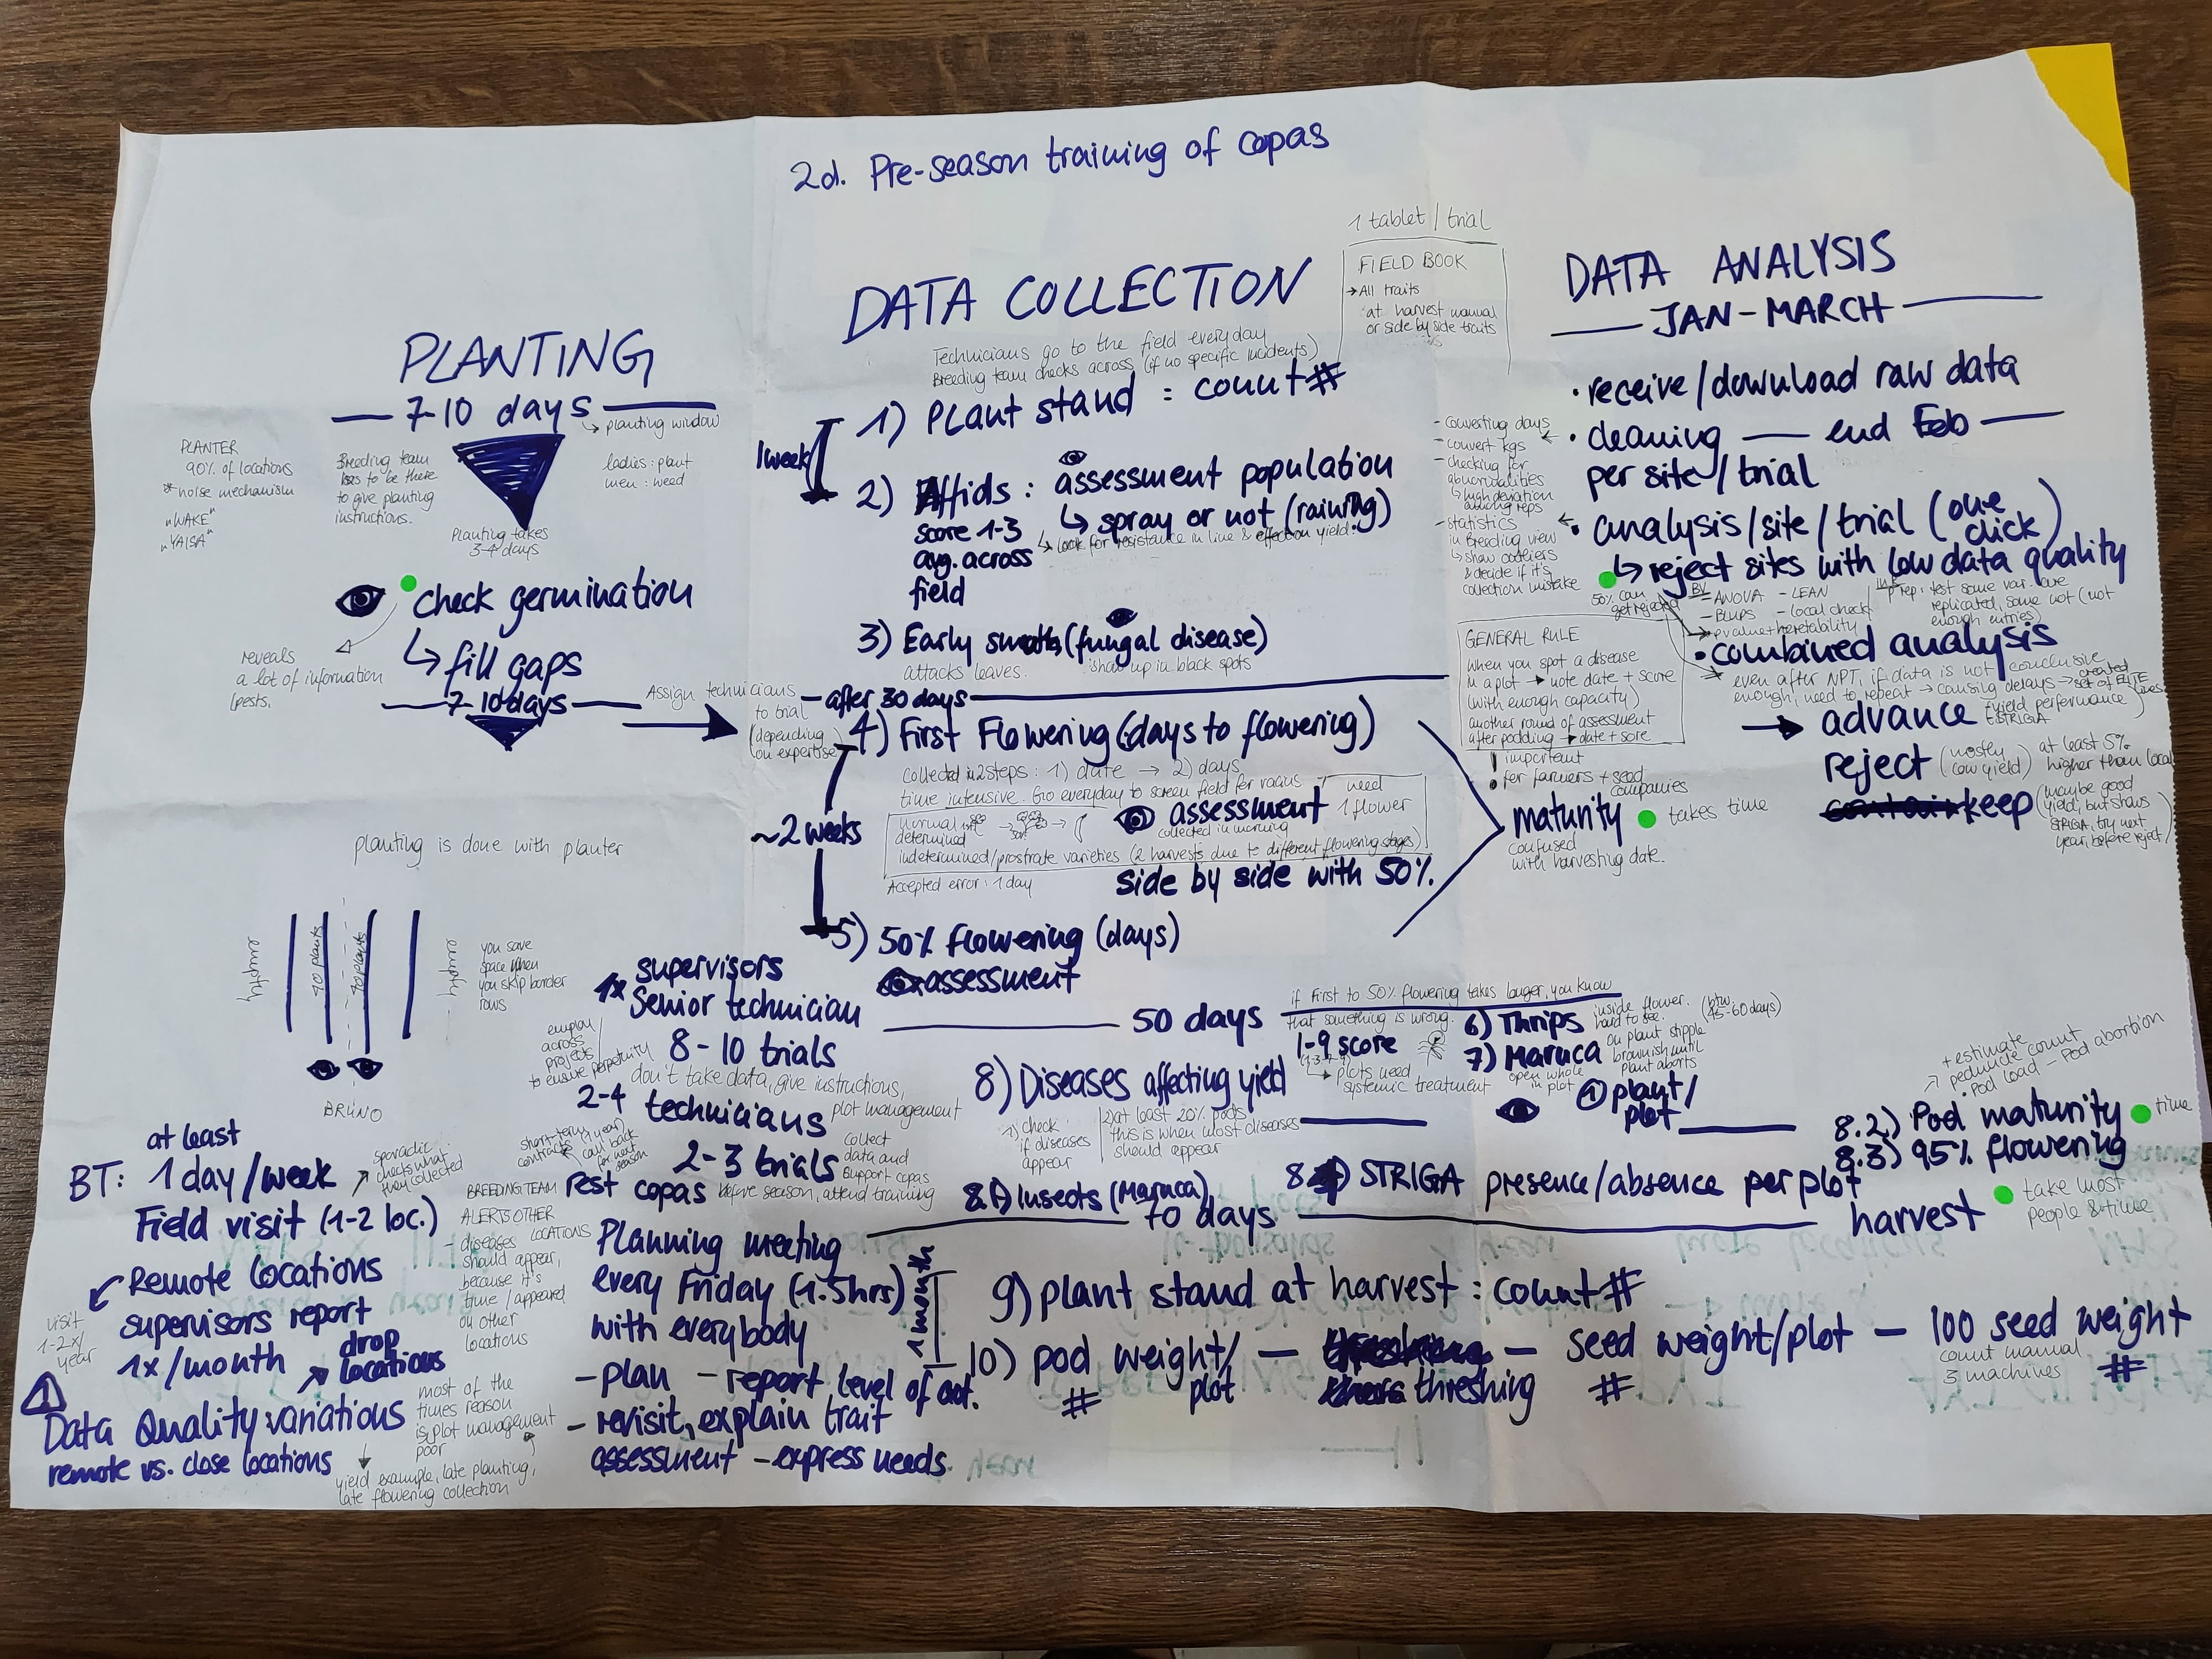 2d. Pre-season training of copas
PLANTING
7-10 days
planting window
PLANTER
90% of locations
* noise mechanism
"WAKE"
"YAISA"
Breeding team
has to be there
to give planting
instructions.
ladies: plant
men: weed
Planting takes
3-4 days
check germination
↳ fill gaps
reveals
a lot of information
(pests.
7-10 days
Assign technicians
to trial
(depending
on expertise)
planting is done with planter
empty
70 plants
70 plants
empty
you save
space when
you skip border
rows
BRUNO
at least
BT: 1 day/week
sporadic
checks what
they collected
Field visit (1-2 loc.)
Remote locations
supervisors report
1x/month
visit
1-2x/
year
drop
locations
Data Quality variations
remote vs. close locations
most of the
times reason
is plot management
poor
yield example, late planting,
late flowering collection
BREEDING TEAM
ALERTS OTHER
LOCATIONS
- diseases
should appear,
because it's
time / appeared
on other
locations
1x supervisors
Senior technician
8-10 trials
employ
across
projects
to ensure perpetuity
don't take data, give instructions,
plot management
2-4 technicians
short-term
contracts (1 year)
call back
for next
season
2-3 trials
collect
data and
support copas
rest copas
before season, attend training
Planning meeting
every Friday (1.5hrs)
with everybody
- plan - report level of act.
- revisit, explain trait
assessment - express needs.
DATA COLLECTION
Technicians go to the field everyday
Breeding team checks across (if no specific incidents)
1 tablet / trial
FIELD BOOK
→ All traits
at harvest manual
or side by side traits
1 week
1) Plant stand : count #
2) Affids : assessment population
↳ spray or not (raining)
score 1-3
avg. across
field
↳ look for resistance in line & effect on yield?
3) Early smoth (fungal disease)
attacks leaves.
show up in black spots
after 30 days
4) First Flowering (days to flowering)
collected in 2 steps: 1) date → 2) days
time intensive. Go everyday to screen field for various
assessment
collected in morning
need
1 flower
normal
determined
indetermined/prostrate varieties (2 harvests due to different flowering stages)
Accepted error: 1 day
side by side with 50%.
~2 weeks
5) 50% flowering (days)
assessment
GENERAL RULE
when you spot a disease
in a plot → note date + score
(with enough capacity)
another round of assessment
after podding → date + sore
! important
for farmers + seed
companies
maturity
takes time
confused
with harvesting date.
50 days
if First to 50% flowering takes longer, you know
that something is wrong.
1-9 score
plots need
systemic treatment
6) Thrips
inside flower.
hard to see.
(btw.
45-60 days)
on plant stipple
brownish until
plant aborts
7) Maruca
open whole
in plot
① plant/
plot
8) Diseases affecting yield
1) check
if diseases
appear
2) at least 20% pods
this is when most diseases
should appear
8.1) Insects (Maruca)
8.4) STRIGA presence/absence per plot
+ estimate
peduncle count
- Pod load - Pod abortion
8.2) Pod maturity
time
8.3) 95% flowering
70 days
harvest
take most
people & time
1 month
9) plant stand at harvest : count #
10) pod weight/
plot
#
— threshing
— seed weight/plot
#
— 100 seed weight
count manual
3 machines
#
DATA ANALYSIS
JAN - MARCH
• receive/download raw data
• cleaning — end Feb
per site/trial
- converting days
- convert kgs
- checking for
abnormalities
↳ high deviation
among reps
- statistics
in Breeding view
↳ show outliers
& decide if it's
collection mistake
• analysis/site/trial (one
click)
↳ reject sites with low data quality
50% can
get rejected
BV
- ANOVA
- BLUPS
- pvalue + heretability
- LEAN
- local check
p rep: test some var. are
replicated, some not (not
enough entries)
• combined analysis
even after NPT, if data is not conclusive
enough, need to repeat → causing delays → created
set of ELITE
lines
→ advance
(yield performance)
& STRIGA
reject (mostly
low yield)
at least 5%
higher than local
keep (maybe good
yield, but shows
STRIGA, try next
year, before reject)